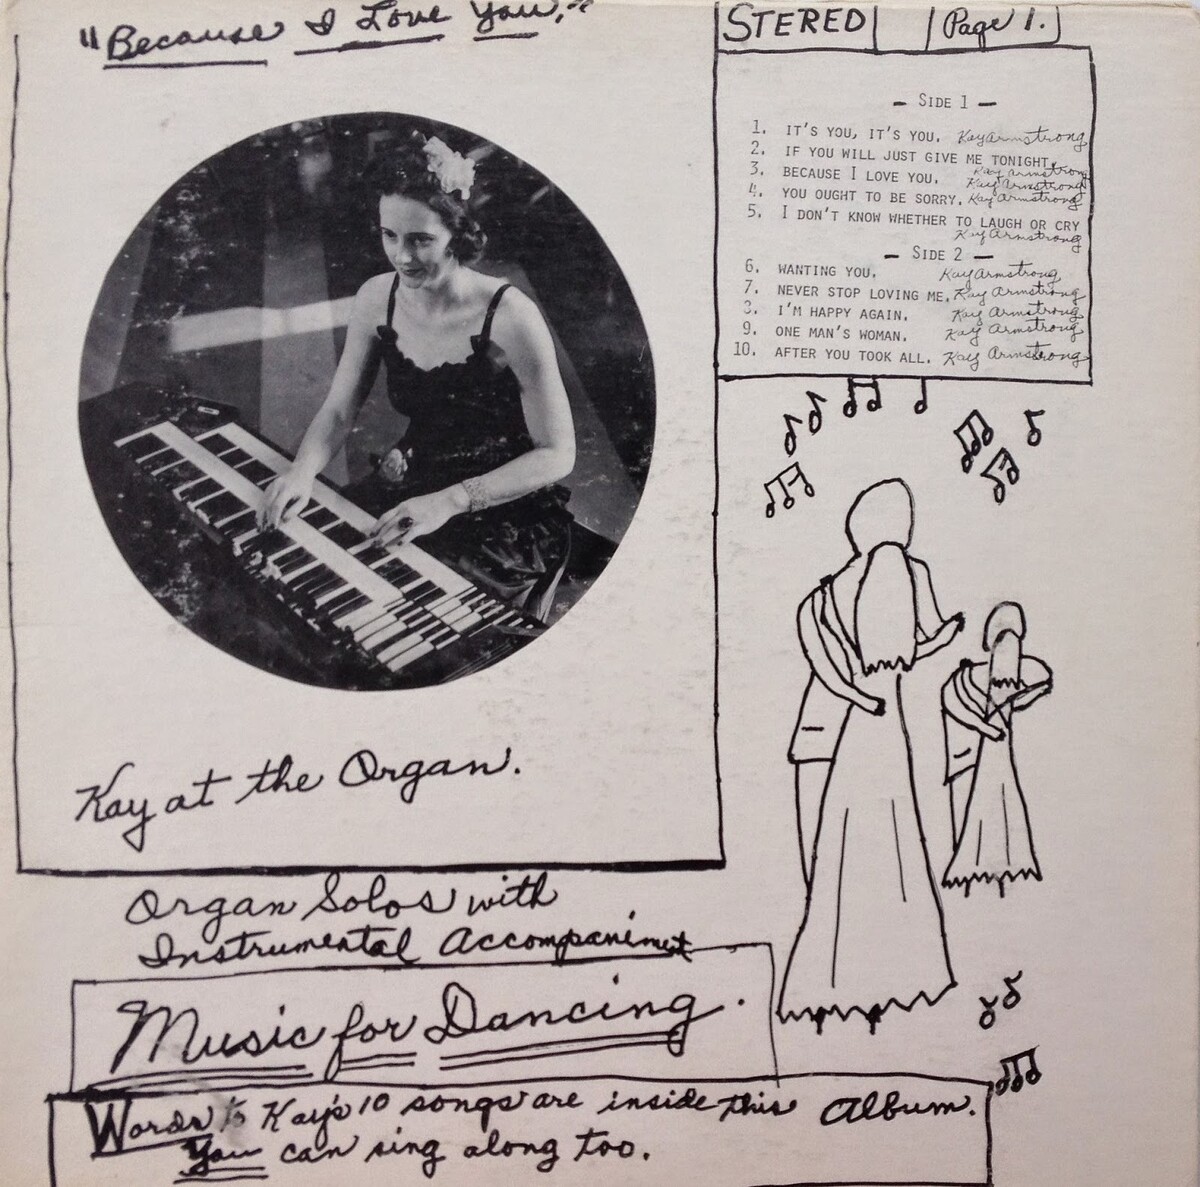 "Because I Love You,"
STEREO
Page 1.
- SIDE 1 -
1. IT'S YOU, IT'S YOU. Kay Armstrong
2. IF YOU WILL JUST GIVE ME TONIGHT. Kay Armstrong
3. BECAUSE I LOVE YOU. Kay Armstrong
4. YOU OUGHT TO BE SORRY. Kay Armstrong
5. I DON'T KNOW WHETHER TO LAUGH OR CRY
Kay Armstrong
- SIDE 2 -
6. WANTING YOU. Kay Armstrong
7. NEVER STOP LOVING ME. Kay Armstrong
8. I'M HAPPY AGAIN. Kay Armstrong
9. ONE MAN'S WOMAN. Kay Armstrong
10. AFTER YOU TOOK ALL. Kay Armstrong
Kay at the Organ.
Organ Solos with
Instrumental Accompanimet
Music for Dancing.
Words to Kay's 10 songs are inside this Album.
You can sing along too.